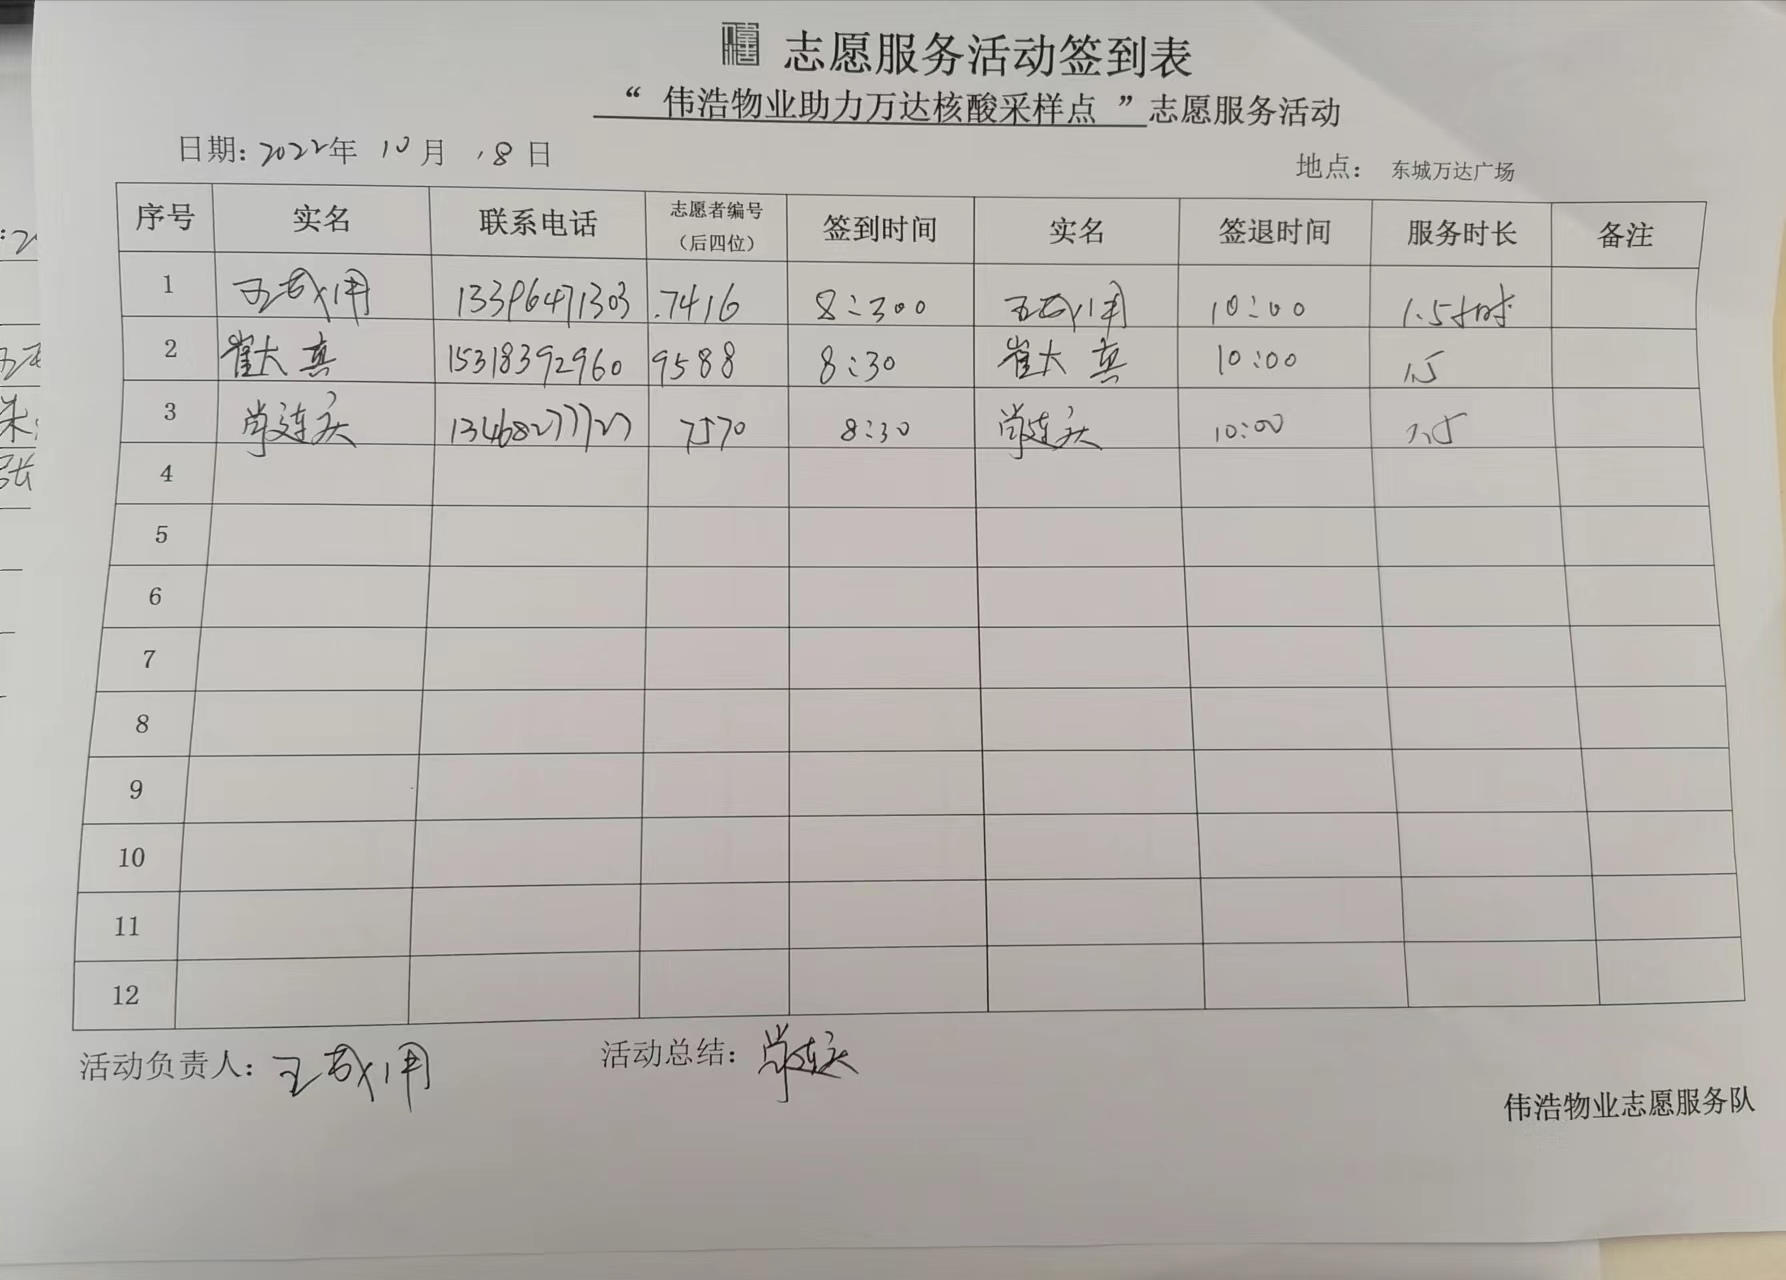 志愿服务活动签到表
“ 伟浩物业助力万达核酸采样点 ”志愿服务活动
日期: 2022年 10月 18日 地点： 东城万达广场
序号 实名 联系电话 志愿者编号（后四位） 签到时间 实名 签退时间 服务时长 备注
1 13396471303 .7416 8:300 10:00 1.5小时
2 崔大真 15318392960 9588 8:30 崔大真 10:00 1.5
3 肖连庆 7570 8:30 肖连庆 10:00 1.5
4
5
6
7
8
9
10
11
12
活动负责人： 活动总结：肖连庆
伟浩物业志愿服务队